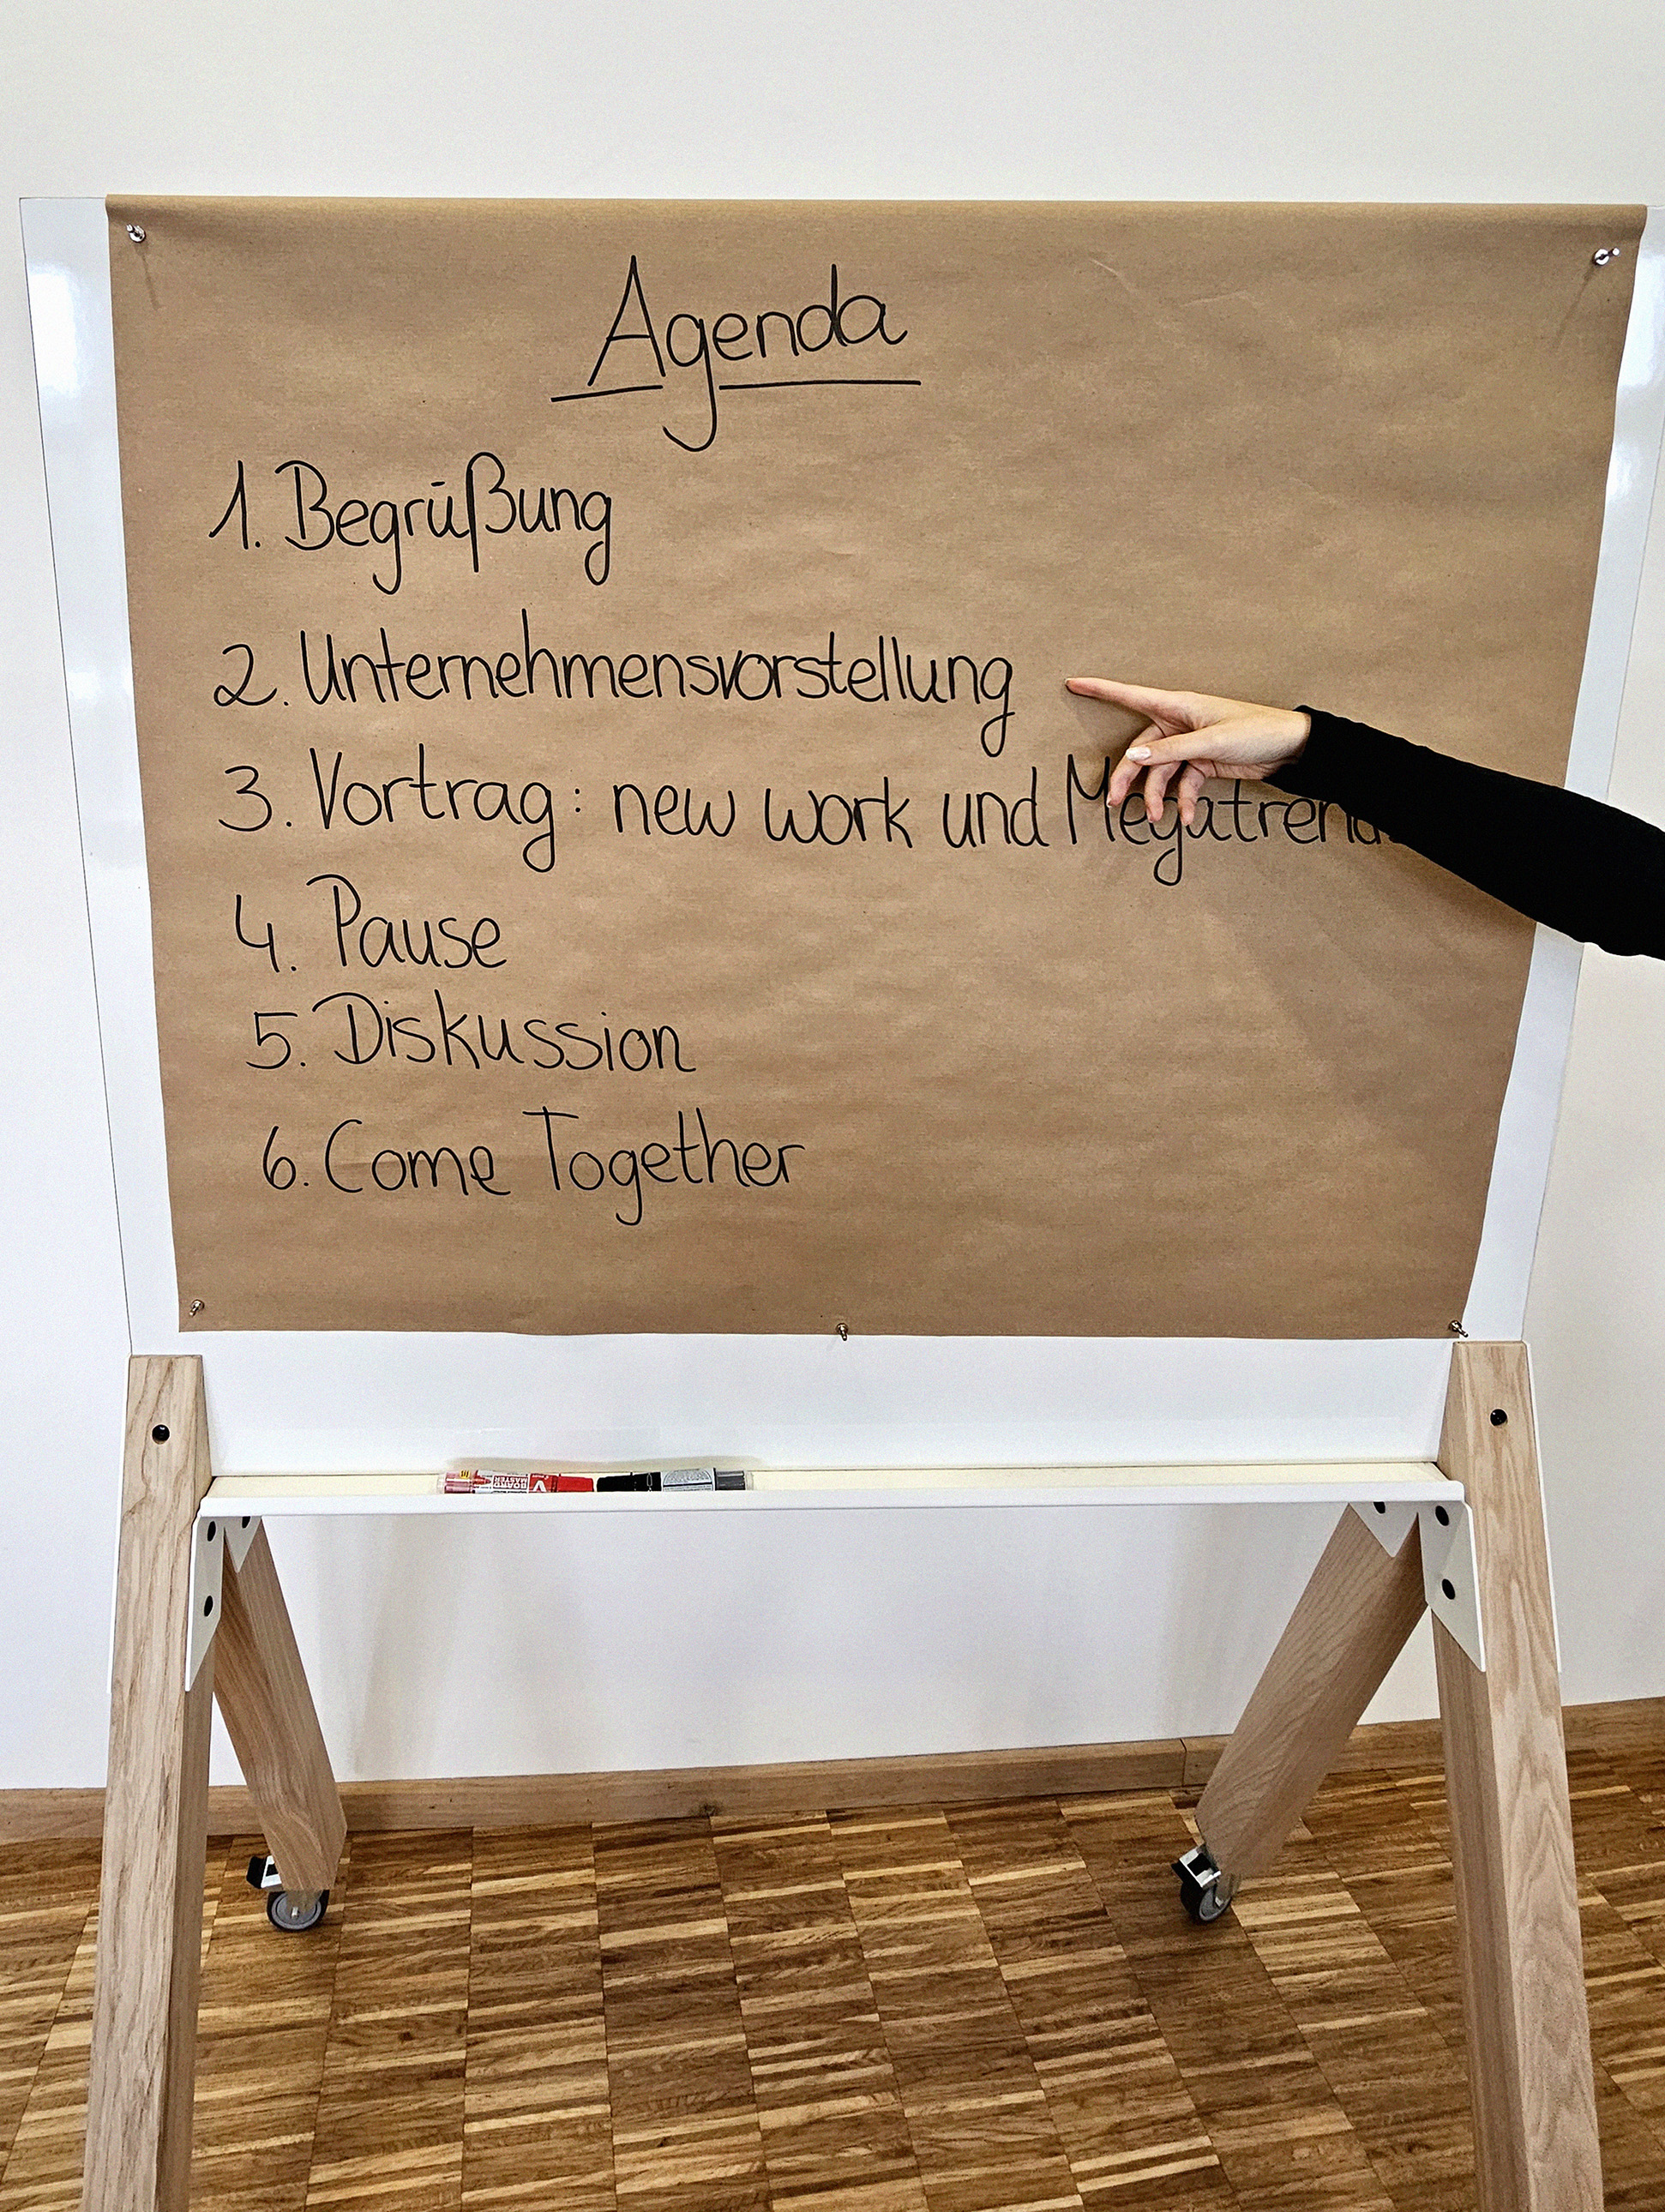 Agenda
1. Begrüßung
2. Unternehmensvorstellung
3. Vortrag: new work und
4. Pause
5. Diskussion
6. Come Together
BOARD MASTER
V